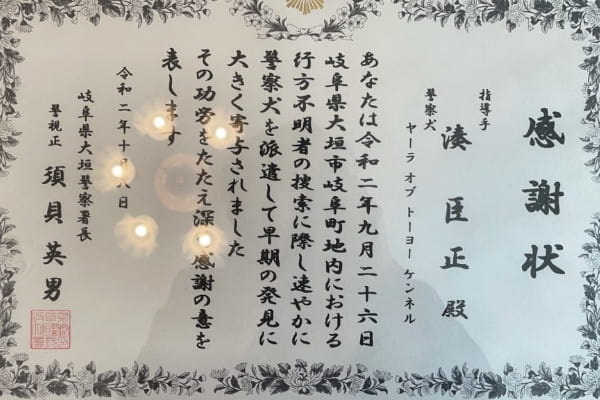 感謝状
指導手 湊 臣正 殿
警察犬 ヤーラ オブ トーヨー ケンネル
あなたは令和二年九月二十六日
岐阜県大垣市岐阜町地内における
行方不明者の捜索に際し速やかに
警察犬を派遣して早期の発見に
大きく寄与されました
その功労をたたえ深く感謝の意を
表します
令和二年十月八日
岐阜県大垣警察署長
警視正 須貝英男